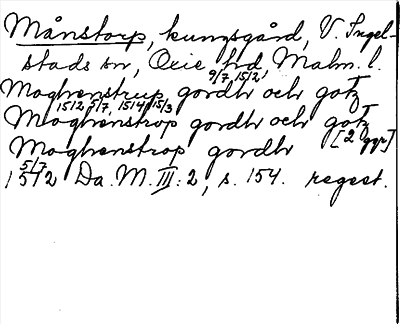 Månstorp, kungsgård, V. Ingel-
stads sn, Oxie hd Malm. l.
9/7, 1512
Moghenstrup gordh och gotz
1512 5/7, 1514 15/3
Moghenstrop gordh och gotz
[2 ggr]
Moghenstrop gordh
5/7
1512 Da. M. III: 2, s. 154. regest.